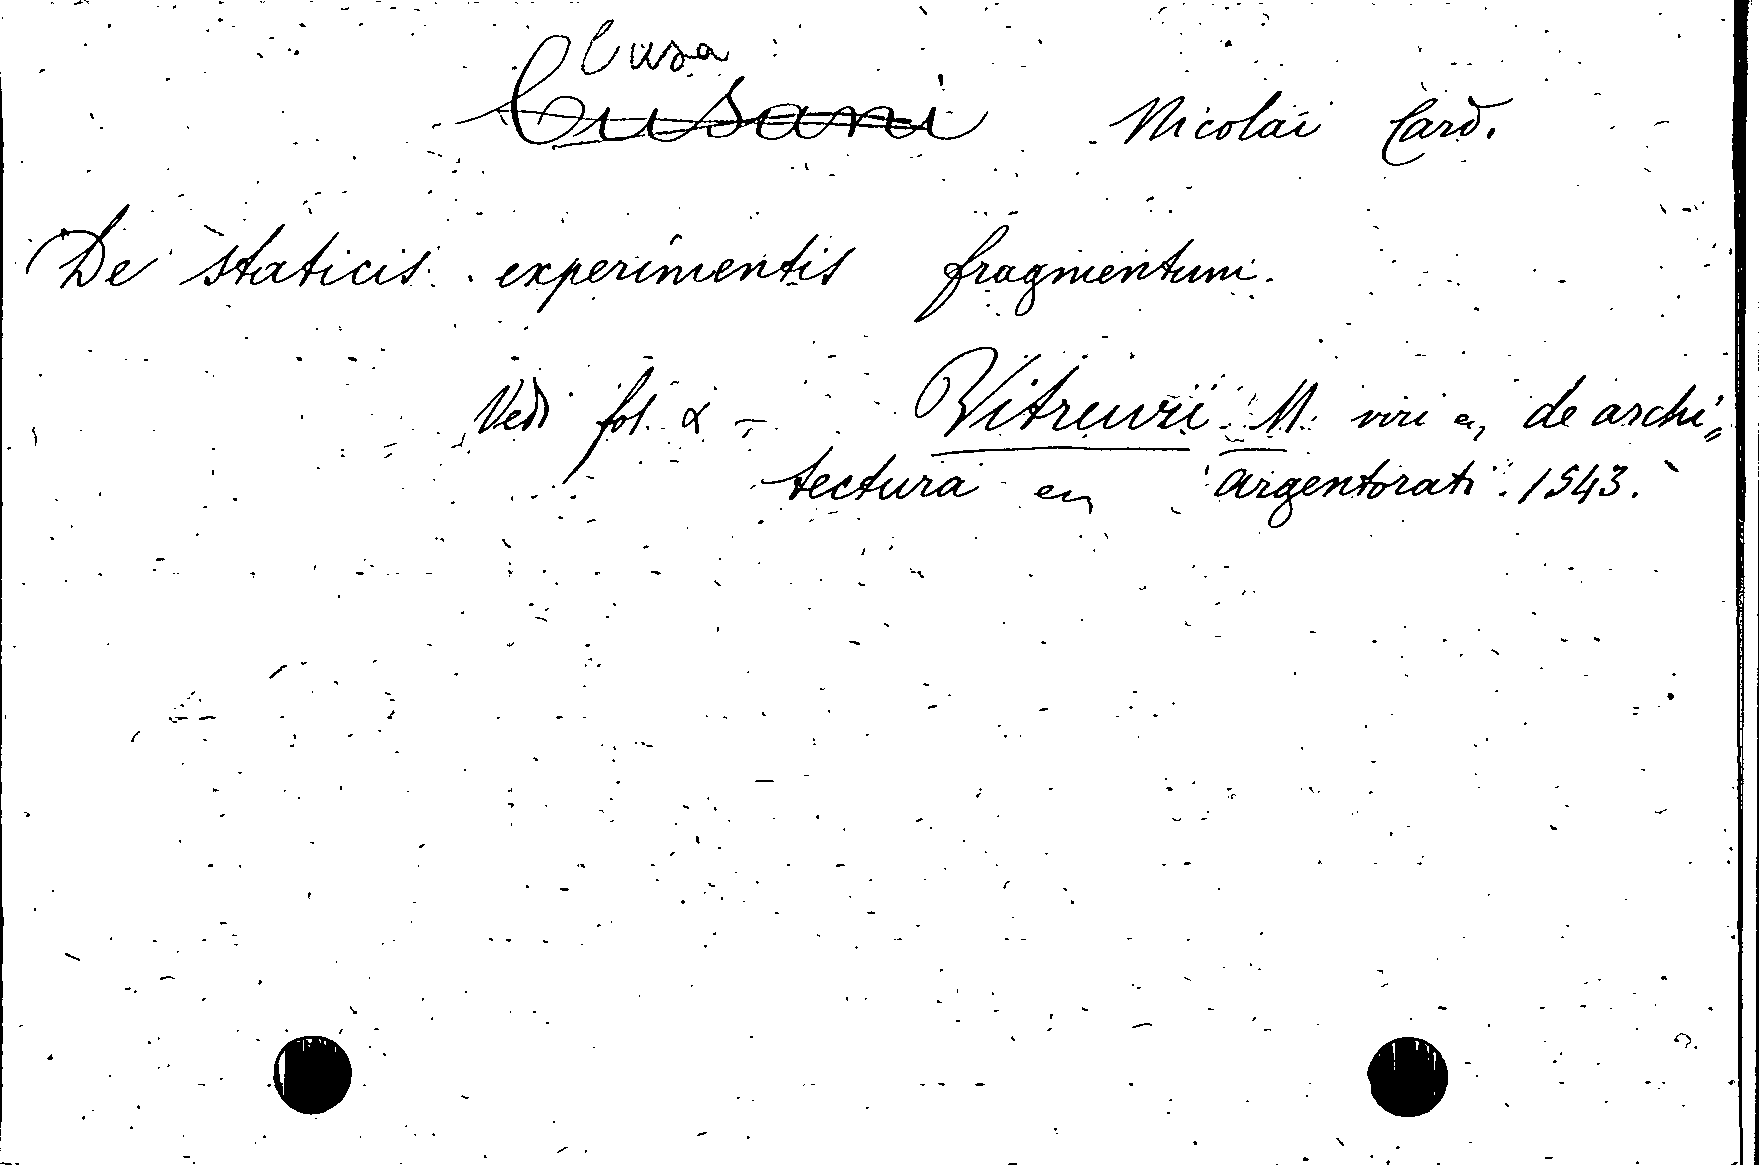 Cusa
Cusani Nicolai Card.
De staticis experimentis fragmentum.
Vedi fol. α – Vitruvii M. viri en de archi„
tectura en Argentorati. 1543.